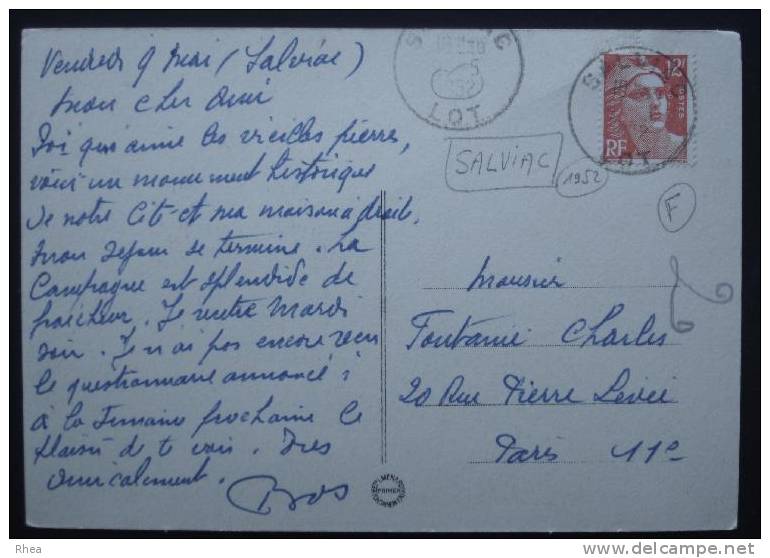 Vendredi 9 Mai (Salviac)
Mon cher Ami
Toi qui aime les vieilles pierres,
voici un monument historique
de notre Cité et ma maison à droite,
Mon séjour se termine. La
Campagne est splendide de
fraicheur. Je rentre Mardi
soir. Je n'ai pas encore reçu
le questionnaire annoncé :
à la semaine prochaine le
plaisir de te voir. Très
Amicalement.
Bros
LOT
5
SALVIAC
1952
F
12F
POSTES
RF
SALVIAC
LOT
Monsieur
Fontanié Charles
20 Rue Pierre Levée
Paris 11e
Rhea
delcampe.net